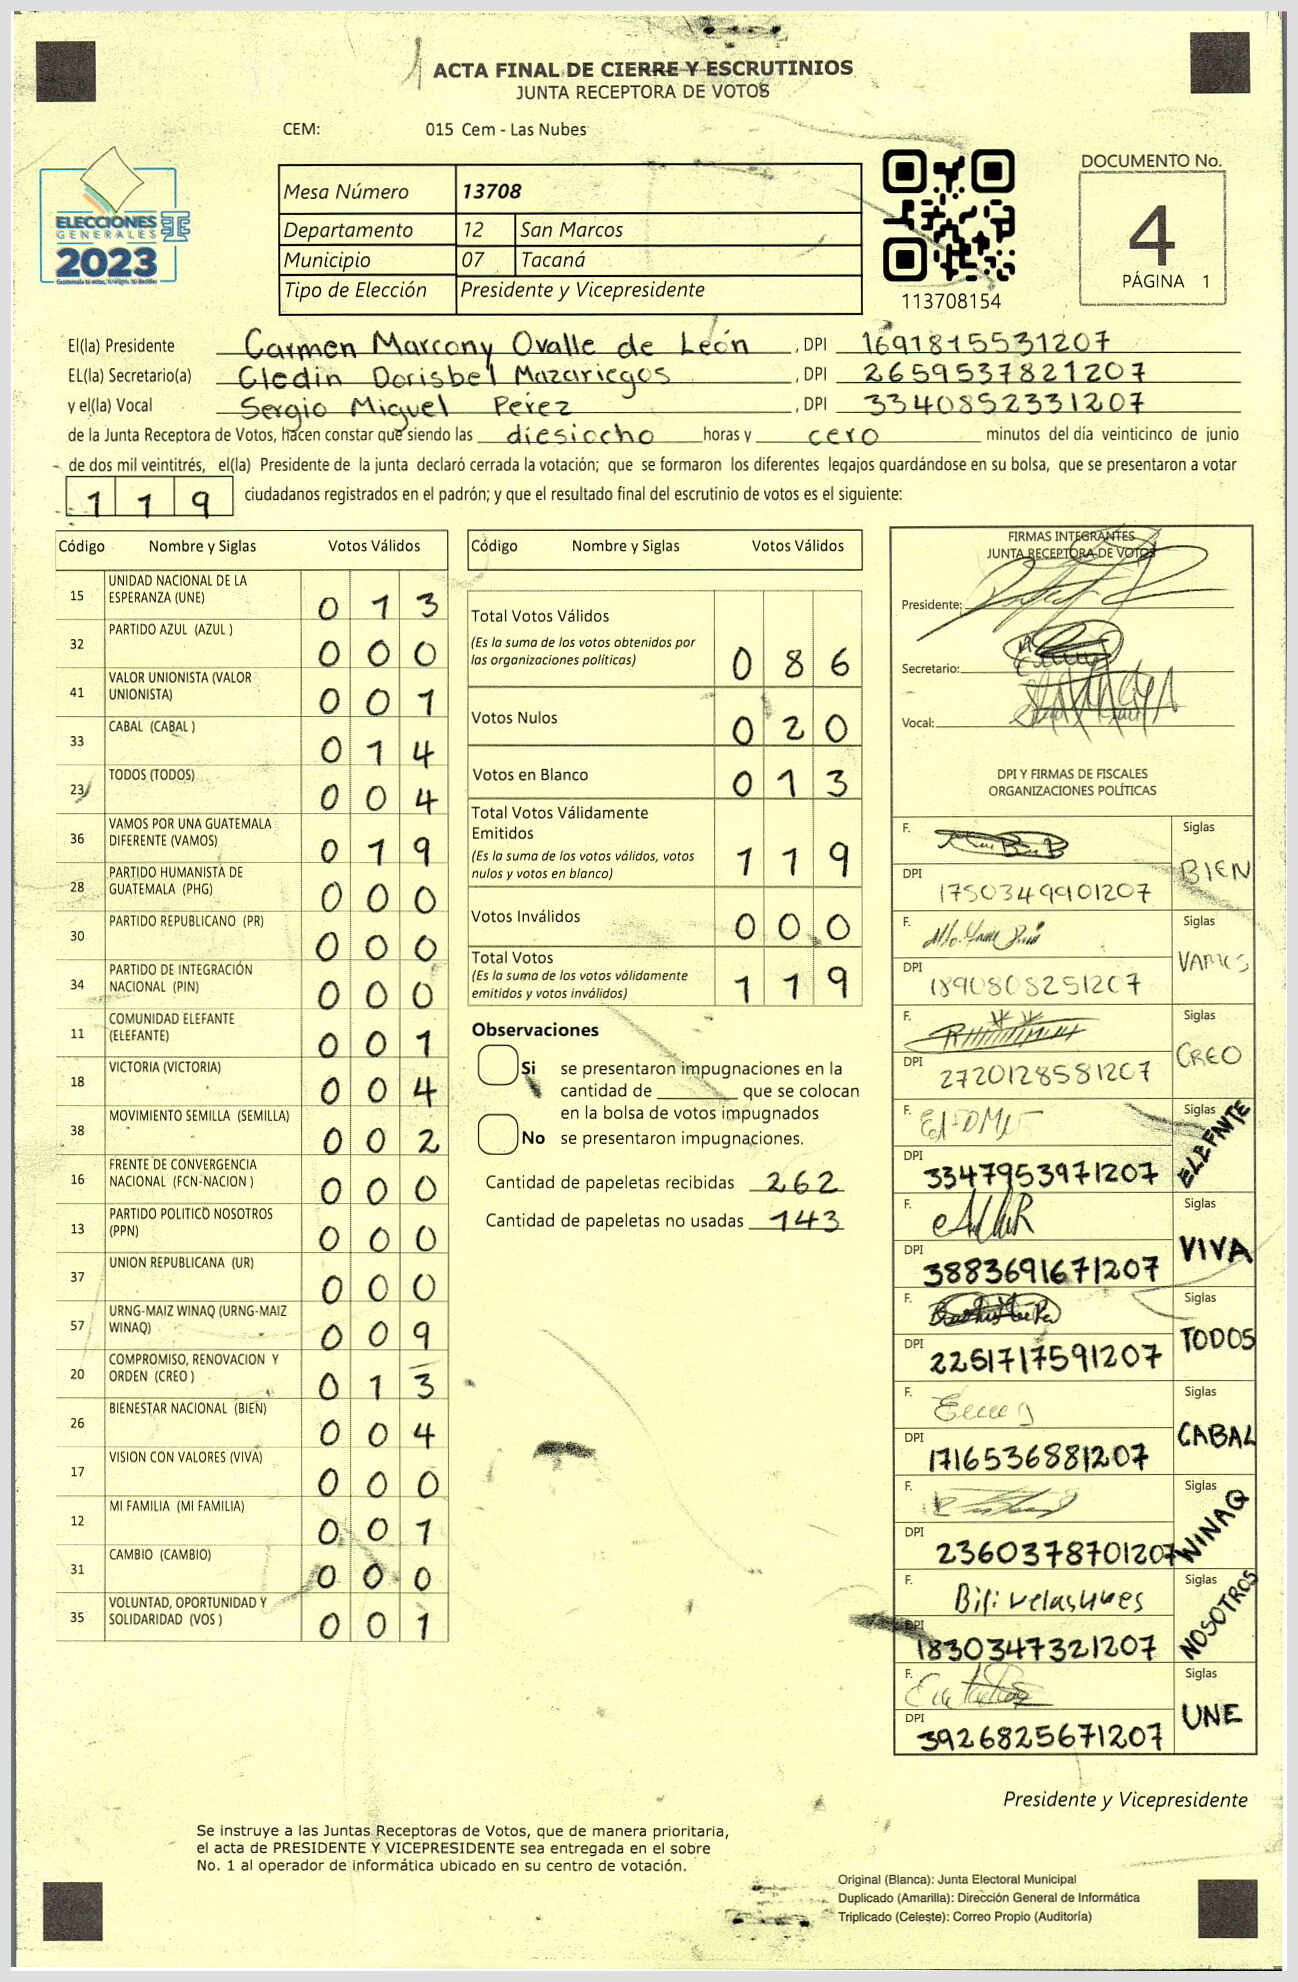 ACTA FINAL DE CIERRE Y ESCRUTINIOS
JUNTA RECEPTORA DE VOTOS
CEM: 015 Cem - Las Nubes
ELECCIONES
GENERALES
2023
Mesa Número 13708
Departamento 12 San Marcos
Municipio 07 Tacaná
Tipo de Elección Presidente y Vicepresidente
113708154
DOCUMENTO No.
4
PÁGINA 1
El(la) Presidente Carmen Marcony Ovalle de León , DPI 1691815531207
EL(la) Secretario(a) Cledin Dorisbel Mazariegos , DPI 2659537821207
y el(la) Vocal Sergio Miguel Perez , DPI 3340852331207
de la Junta Receptora de Votos, hacen constar que siendo las diesiocho horas y cero minutos del día veinticinco de junio
de dos mil veintitrés, el(la) Presidente de la junta declaró cerrada la votación; que se formaron los diferentes legajos quardándose en su bolsa, que se presentaron a votar
119 ciudadanos registrados en el padrón; y que el resultado final del escrutinio de votos es el siguiente:
Código Nombre y Siglas Votos Válidos
15 UNIDAD NACIONAL DE LA ESPERANZA (UNE) 013
32 PARTIDO AZUL (AZUL ) 000
41 VALOR UNIONISTA (VALOR UNIONISTA) 001
33 CABAL (CABAL ) 014
23 TODOS (TODOS) 004
36 VAMOS POR UNA GUATEMALA DIFERENTE (VAMOS) 019
28 PARTIDO HUMANISTA DE GUATEMALA (PHG) 000
30 PARTIDO REPUBLICANO (PR) 000
34 PARTIDO DE INTEGRACIÓN NACIONAL (PIN) 000
11 COMUNIDAD ELEFANTE (ELEFANTE) 001
18 VICTORIA (VICTORIA) 004
38 MOVIMIENTO SEMILLA (SEMILLA) 002
16 FRENTE DE CONVERGENCIA NACIONAL (FCN-NACION ) 000
13 PARTIDO POLITICO NOSOTROS (PPN) 000
37 UNION REPUBLICANA (UR) 000
57 URNG-MAIZ WINAQ (URNG-MAIZ WINAQ) 009
20 COMPROMISO, RENOVACION Y ORDEN (CREO ) 013
26 BIENESTAR NACIONAL (BIEN) 004
17 VISION CON VALORES (VIVA) 000
12 MI FAMILIA (MI FAMILIA) 001
31 CAMBIO (CAMBIO) 000
35 VOLUNTAD, OPORTUNIDAD Y SOLIDARIDAD (VOS ) 001
Código Nombre y Siglas Votos Válidos
Total Votos Válidos
(Es la suma de los votos obtenidos por
las organizaciones políticas) 086
Votos Nulos 020
Votos en Blanco 013
Total Votos Válidamente
Emitidos
(Es la suma de los votos válidos, votos
nulos y votos en blanco) 119
Votos Inválidos 000
Total Votos
(Es la suma de los votos válidamente
emitidos y votos inválidos) 119
Observaciones
Si se presentaron impugnaciones en la
cantidad de ________ que se colocan
en la bolsa de votos impugnados
No se presentaron impugnaciones.
Cantidad de papeletas recibidas 262
Cantidad de papeletas no usadas 143
FIRMAS INTEGRANTES
JUNTA RECEPTORA DE VOTOS
Presidente:
Secretario:
Vocal:
DPI Y FIRMAS DE FISCALES
ORGANIZACIONES POLÍTICAS
F. Siglas BIEN
DPI 1750349901207
F. Siglas VAMOS
DPI 1890808251207
F. Siglas CREO
DPI 2720128581207
F. Siglas ELEFNTE
DPI 3347953971207
F. Siglas VIVA
DPI 3883691671207
F. Siglas TODOS
DPI 2251717591207
F. Siglas CABAL
DPI 1716536881207
F. Siglas WINAQ
DPI 2360378701207
F. Siglas NOSOTROS
DPI 1830347321207
F. Siglas UNE
DPI 3926825671207
Presidente y Vicepresidente
Se instruye a las Juntas Receptoras de Votos, que de manera prioritaria,
el acta de PRESIDENTE Y VICEPRESIDENTE sea entregada en el sobre
No. 1 al operador de informática ubicado en su centro de votación.
Original (Blanca): Junta Electoral Municipal
Duplicado (Amarilla): Dirección General de Informática
Triplicado (Celeste): Correo Propio (Auditoría)